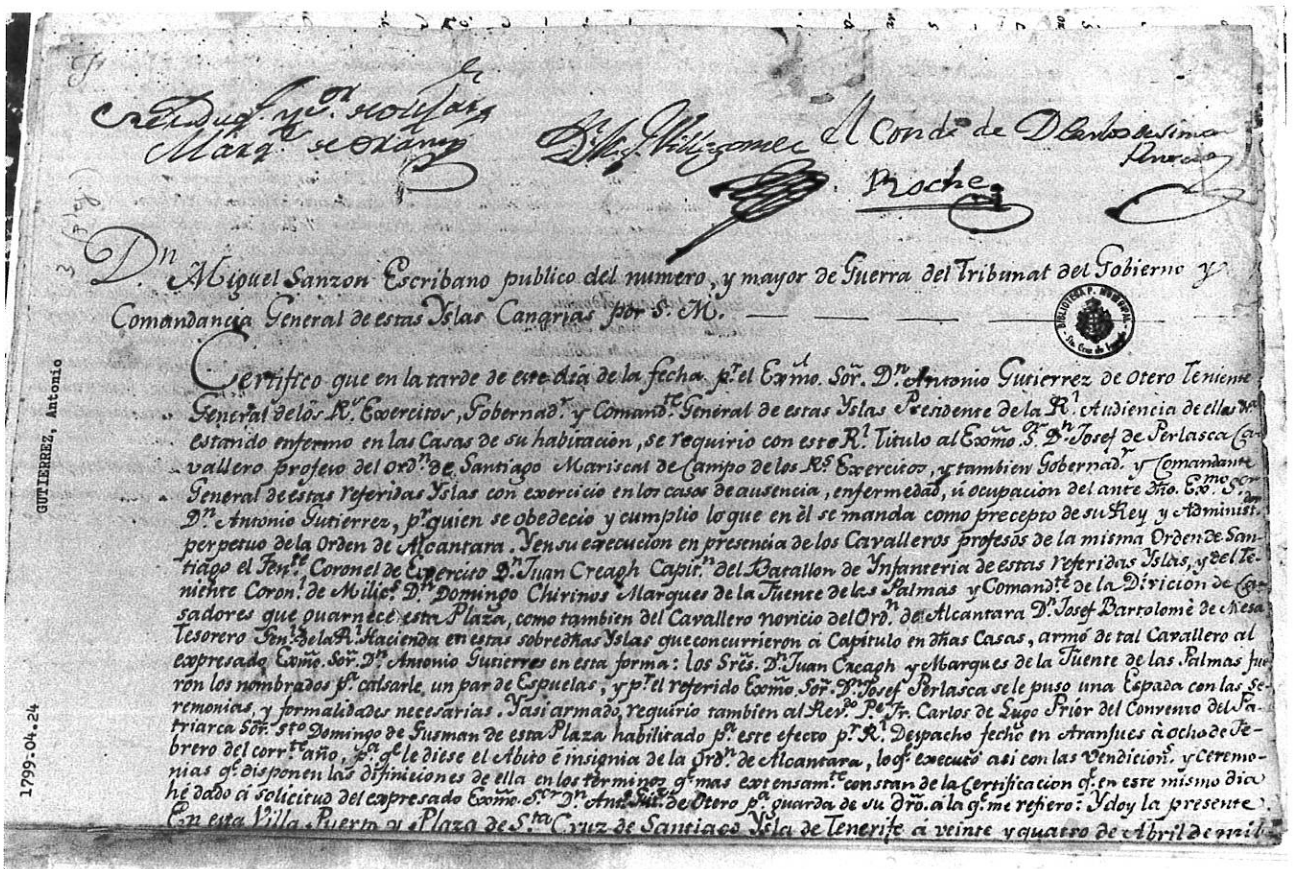 Marq.s de
El Conde de
Roche
D. Carlos de Simon
D.n Miguel Sanzon Escribano publico del numero, y mayor de Guerra del Tribunal del Gobierno y
Comandancia General de estas Yslas Canarias por S. M.
BIBLIOTECA P. MUNICIPAL
Sta. Cruz de Tenerife
Certifico que en la tarde de este día de la fecha p.r el Exmo. Sor. D.n Antonio Gutierrez de Otero Teniente
General de los R.s Exercitos, Gobernad.r y Comand.te General de estas Yslas Presidente de la R.l Audiencia de ellas
estando enfermo en las Casas de su habitación, se requirio con este R.l Titulo al Exmo. S.r D.n Josef de Perlasca Ca-
vallero profeso del Ord.n de Santiago Mariscal de Campo de los R.s Exercitos, y tambien Gobernad.r y Comandante
General de estas referidas Yslas con exercicio en los casos de ausencia, enfermedad, ú ocupacion del ante dho. Ex.mo S.or
D.n Antonio Gutierrez, p.r quien se obedecio y cumplio lo que en èl se manda como precepto de su Rey y Administ.dor
perpetuo de la Orden de Alcantara. Y en su execucion en presencia de los Cavalleros profesos de la misma Orden de San-
tiago el Ten.te Coronel de Exercito D.n Juan Creagh Capit.n del Batallon de Infanteria de estas referidas Yslas, y del Te-
niente Coron.l de Milic.s D.n Domingo Chirinos Marques de la Fuente de las Palmas y Comand.te de la Divicion de Ca-
sadores que guarnece esta Plaza, como tambien del Cavallero novicio del Ord.n de Alcantara D.n Josef Bartolomè de Mesa
Tesorero Gen.l de la R.l Hacienda en estas sobredhas Yslas que concurrieron à Capitulo en dhas Casas, armó de tal Cavallero al
expresado Exmo. Sor. D.n Antonio Gutierres en esta forma: los Sres. D.n Juan Creagh y Marques de la Fuente de las Palmas fue
ron los nombrados p.a calsarle, un par de Espuelas, y p.r el referido Exmo. Sor. D.n Josef Perlasca se le puso una Espada con las Se-
remonias, y formalidades necesarias. Y asi armado, requirio tambien al Rev.do P.e Fr. Carlos de Lugo Prior del Convento del Pa-
triarca Sor. Sto Domingo de Gusman de esta Plaza habilitado p.a este efecto p.r R.l Despacho fecho en Aranjues à ocho de Fe-
brero del corr.te año, p.a q.e le diese el Abito è insignia de la Ord.n de Alcantara, lo q.e executó asi con las vendicion.s y ceremo-
nias q.e disponen las difiniciones de ella en los terminos q.e mas extensam.te constan de la Certificacion q.e en este mismo dia
hé dado á solicitud del expresado Exmo. S.or D.n Ant.o Gut.z de Otero p.a guarda de su dro. a la q.e me refiero: Y doy la presente
En esta Villa Puerto y Plaza de S.ta Cruz de Santiago Ysla de Tenerife à veinte y quatro de Abril de mil
GUTIERREZ, Antonio
1799-04.24